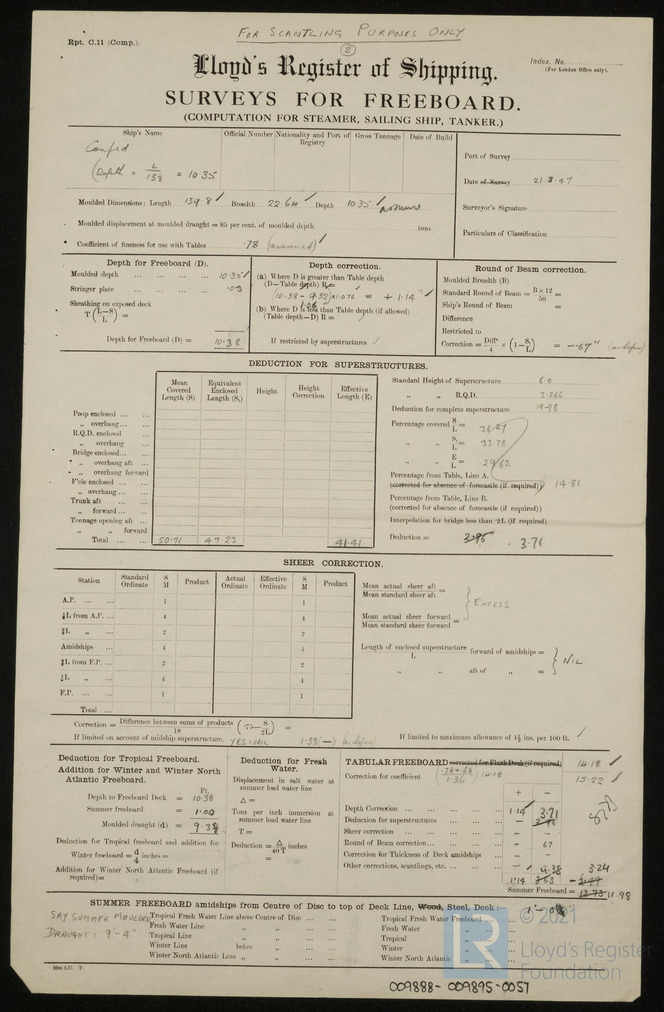 FOR SCANTLING PURPOSES ONLY
Rpt. C.11 (Comp.).
2
Index. No.
(For London Office only).
Lloyd's Register of Shipping.
SURVEYS FOR FREEBOARD.
(COMPUTATION FOR STEAMER, SAILING SHIP, TANKER.)
Ship's Name Official Number Nationality and Port of Registry Gross Tonnage Date of Build
(Depth = L/13½ = 10.35
Port of Survey
Date of Survey 21.3.47
Surveyor's Signature
Particulars of Classification
Moulded Dimensions: Length 139.8 Breadth 22.64 Depth 10.35
Moulded displacement at moulded draught = 85 per cent. of moulded depth tons
Coefficient of fineness for use with Tables .78 (assumed)
Depth for Freeboard (D).
Moulded depth 10.35
Stringer plate .03
Sheathing on exposed deck
T (L-S/L) =
Depth for Freeboard (D) = 10.38
Depth correction.
(a) Where D is greater than Table depth
(D—Table depth) R =
(10.38 - 9.32) 1.076 = + 1.14"
1.06
(b) Where D is less than Table depth (if allowed)
(Table depth—D) R =
If restricted by superstructures
Round of Beam correction.
Moulded Breadth (B)
Standard Round of Beam = B × 12/50 =
Ship's Round of Beam =
Difference
Restricted to
Correction = Diff/4 × (1-S₁/L) = -.67" (as before)
DEDUCTION FOR SUPERSTRUCTURES.
Mean Covered Length (S) Equivalent Enclosed Length (S₁) Height Height Correction Effective Length (E)
Poop enclosed
„ overhang
R.Q.D. enclosed
„ overhang
Bridge enclosed
„ overhang aft
„ overhang forward
F'cle enclosed
„ overhang
Trunk aft
„ forward
Tonnage opening aft
„ „ forward
Total 50.71 47.23 41.41
Standard Height of Superstructure 6.0
„ „ R.Q.D. 3.266
Deduction for complete superstructure 19.98
Percentage covered S/L = 36.27
„ „ S₁/L = 33.78
„ „ E/L = 29.62
Percentage from Table, Line A.
(corrected for absence of forecastle (if required)) 14.81
Percentage from Table, Line B.
(corrected for absence of forecastle (if required))
Interpolation for bridge less than ·2L (if required)
Deduction = 2.96 3.71
SHEER CORRECTION.
Station Standard Ordinate S M Product Actual Ordinate Effective Ordinate S M Product
A.P. 1 1
⅙L from A.P. 4 4
⅓L „ 2 2
Amidships 4 4
⅓L from F.P. 2 2
⅙L „ 4 4
F.P. 1 1
Total
Mean actual sheer aft
Mean standard sheer aft =
Excess
Mean actual sheer forward
Mean standard sheer forward =
Length of enclosed superstructure forward of amidships =
L
NIL
„ „ aft of „ =
Correction = Difference between sums of products/18 (·75-S/2L) =
If limited on account of midship superstructure. YES = NIL 1.33 (—) (as before)
If limited to maximum allowance of 1½ ins. per 100 ft.
Deduction for Tropical Freeboard.
Addition for Winter and Winter North Atlantic Freeboard.
Ft.
Depth to Freeboard Deck = 10.38
Summer freeboard = 1.00
Moulded draught (d) = 9.38
Deduction for Tropical freeboard and addition for
Winter freeboard = d/4 inches =
Addition for Winter North Atlantic Freeboard (if required) =
Deduction for Fresh Water.
Displacement in salt water at summer load water line
Δ =
Tons per inch immersion at summer load water line
T =
Deduction = Δ/40T inches
=
TABULAR FREEBOARD corrected for Flush Deck (if required) 14.18
Correction for coefficient (.78+.68/1.36) 14.18 15.22
+ —
Depth Correction 1.14 —
Deduction for superstructures — 3.71
Sheer correction — —
Round of Beam correction — .67
Correction for Thickness of Deck amidships — —
Other corrections, scantlings, etc. — 4.38 3.24
1.14
Summer Freeboard = 12.73 11.98
SUMMER FREEBOARD amidships from Centre of Disc to top of Deck Line, Wood, Steel, Deck:
SAY SUMMER MOULDED
DRAUGHT: 9'-4"
Tropical Fresh Water Line above Centre of Disc
Fresh Water Line „ „
Tropical Line „ „
Winter Line below „
Winter North Atlantic Line „ „
Tropical Fresh Water Freeboard
Fresh Water „
Tropical „
Winter „
Winter North Atlantic „
LR
© 2021
Lloyd's Register
Foundation
009888-009895-0057